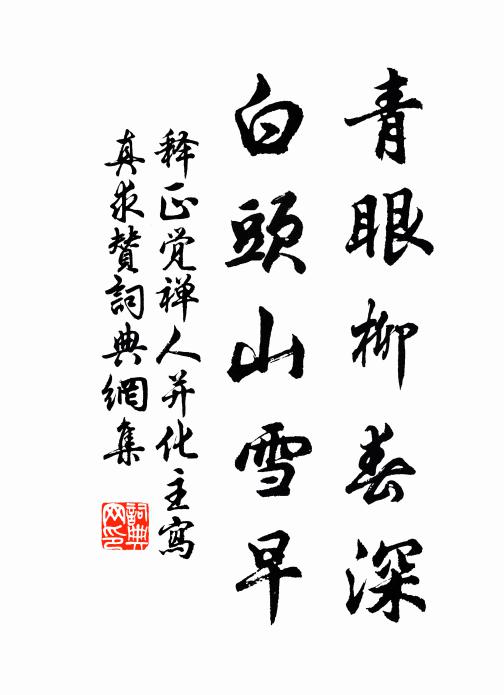 青眼柳春深
白頭山雪早
释正觉禅人并化主寫
真求赞詞典網集
詞典
网印